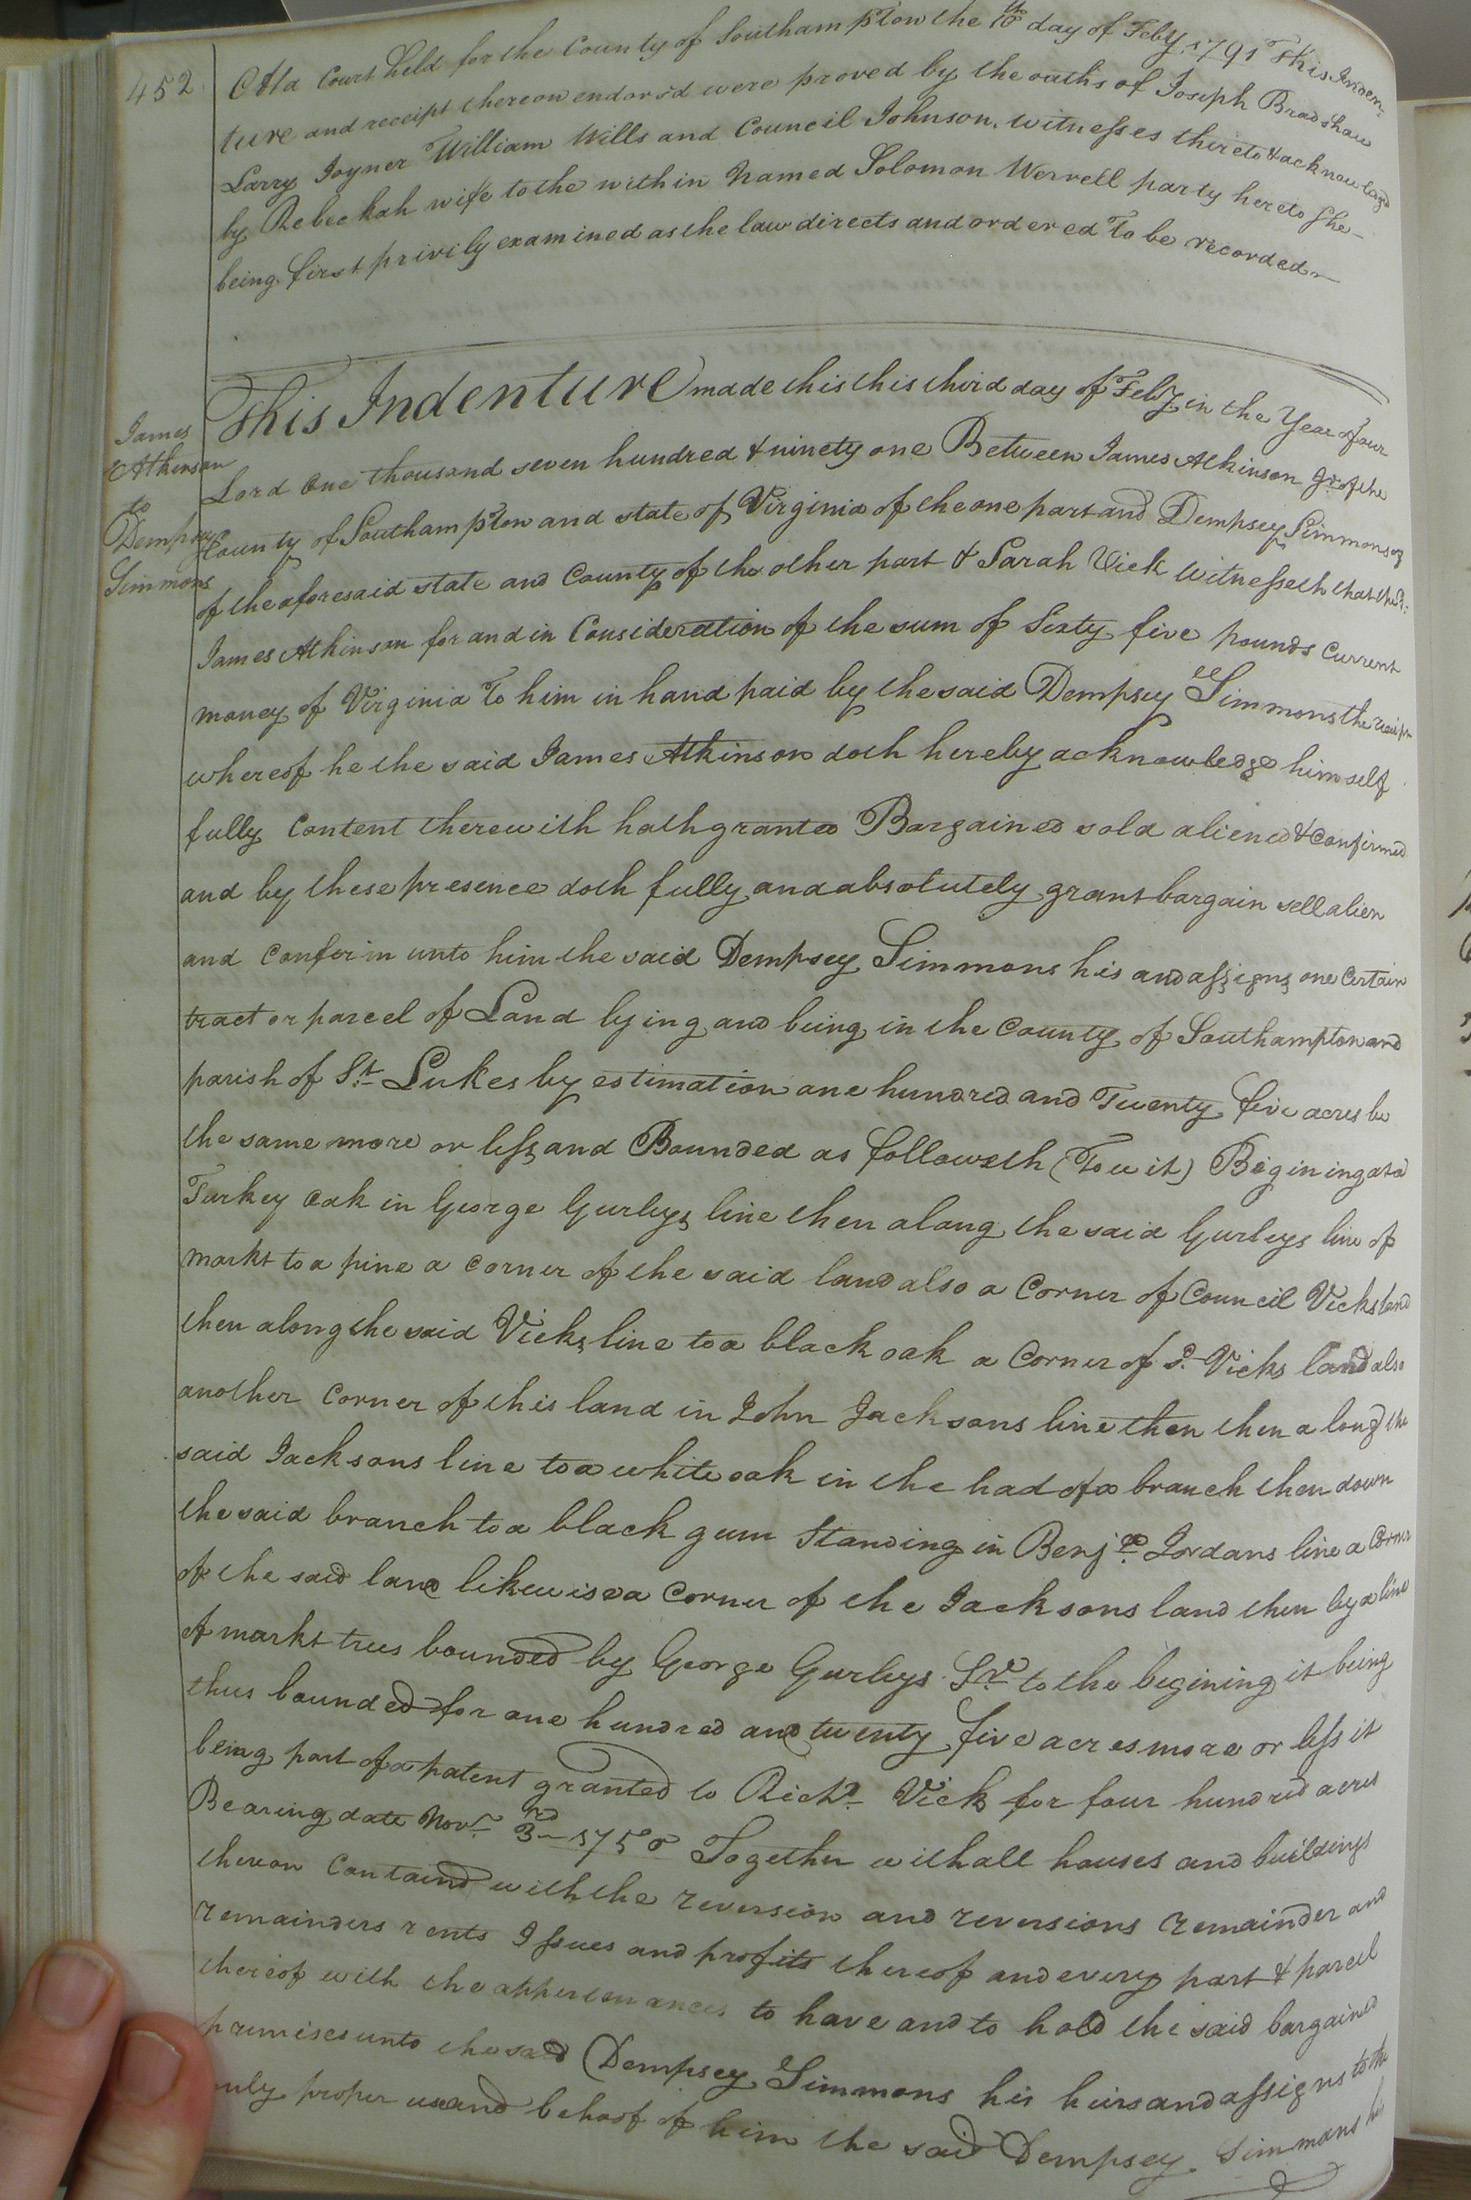 452
At a Court held for the County of Southampton the 10th day of Feby 1791 This Inden-
ture and receipt thereon endorsd were proved by the oaths of Joseph Bradshaw
Larry Joyner William Wills and Council Johnson, witnesses thereto & acknowlegd
by Rebeckah wife to the within named Solomon Worrell party hereto She
being first privily examined as the law directs and ordered To be recorded
James
Atkinson
to
Dempsey
Simmons
This Indenture made this this third day of Feby in the Year of our
Lord One thousand seven hundred & ninety one Between James Atkinson Jr of the
County of Southampton and state of Virginia of the one part and Dempsey Simmons
of the aforesaid state and County of the other part & Sarah Vick Witnesseth that the sd
James Atkinson for and in Consideration of the sum of Sixty five pounds Current
money of Virginia To him in hand paid by the said Dempsey Simmons the receipt
whereof he the said James Atkinson doth hereby acknowledge himself
fully Content therewith hath granted Bargained sold aliened & confirmed
and by these presence doth fully and absolutely grant bargain sell alien
and Conferm unto him the said Dempsey Simmons his and assigns one Certain
tract or parcel of Land lying and being in the County of Southampton and
parish of St. Lukes by estimation one hundred and Twenty five acres be
the same more or less and Bounded as followeth (Towit) Begining at a
Turkey Oak in George Gurleys line then along the said Gurleys line of
markt to a pine a corner of the said land also a Corner of Council Vicks land
then along the said Vicks line to a black oak a Corner of sd. Vicks land also
another Corner of this land in John Jacksons line then then along the
said Jacksons line to a white oak in the had of a branch then down
the said branch to a black gum Standing in Benja. Jordans line a Corner
of the said land likewise a Corner of the Jacksons land then by a line
of markt trees bounded by George Gurleys Sr. to the begining it being
thus bounded for one hundred and twenty five acres more or less it
being part of a patent granted to Richd. Vick for four hundred acres
Bearing date Novr. 3rd 1750 Together with all houses and buildings
thereon Containd with the reversion and reversions remainder and
remainders rents Issues and profits thereof and every part & parcel
thereof with the appurtenances to have and to hold the said bargained
premises unto the said Dempsey Simmons his heirs and assigns to the
only proper use and behoof of him the said Dempsey Simmons his